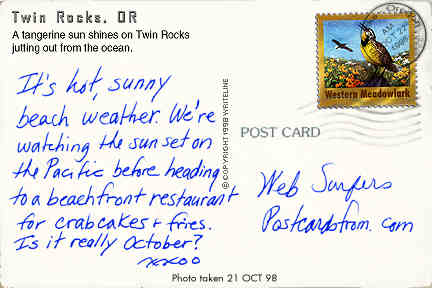 Twin Rocks, OR
A tangerine sun shines on Twin Rocks
jutting out from the ocean.
It's hot, sunny
beach weather. We're
watching the sun set on
the Pacific before heading
to a beachfront restaurant
for crabcakes & fries.
Is it really October?
xxoo
© COPYRIGHT 1998 WRITELINE
Western Meadowlark
AM
1998
POST CARD
Web Surfers
Postcardsfrom.com
Photo taken 21 OCT 98